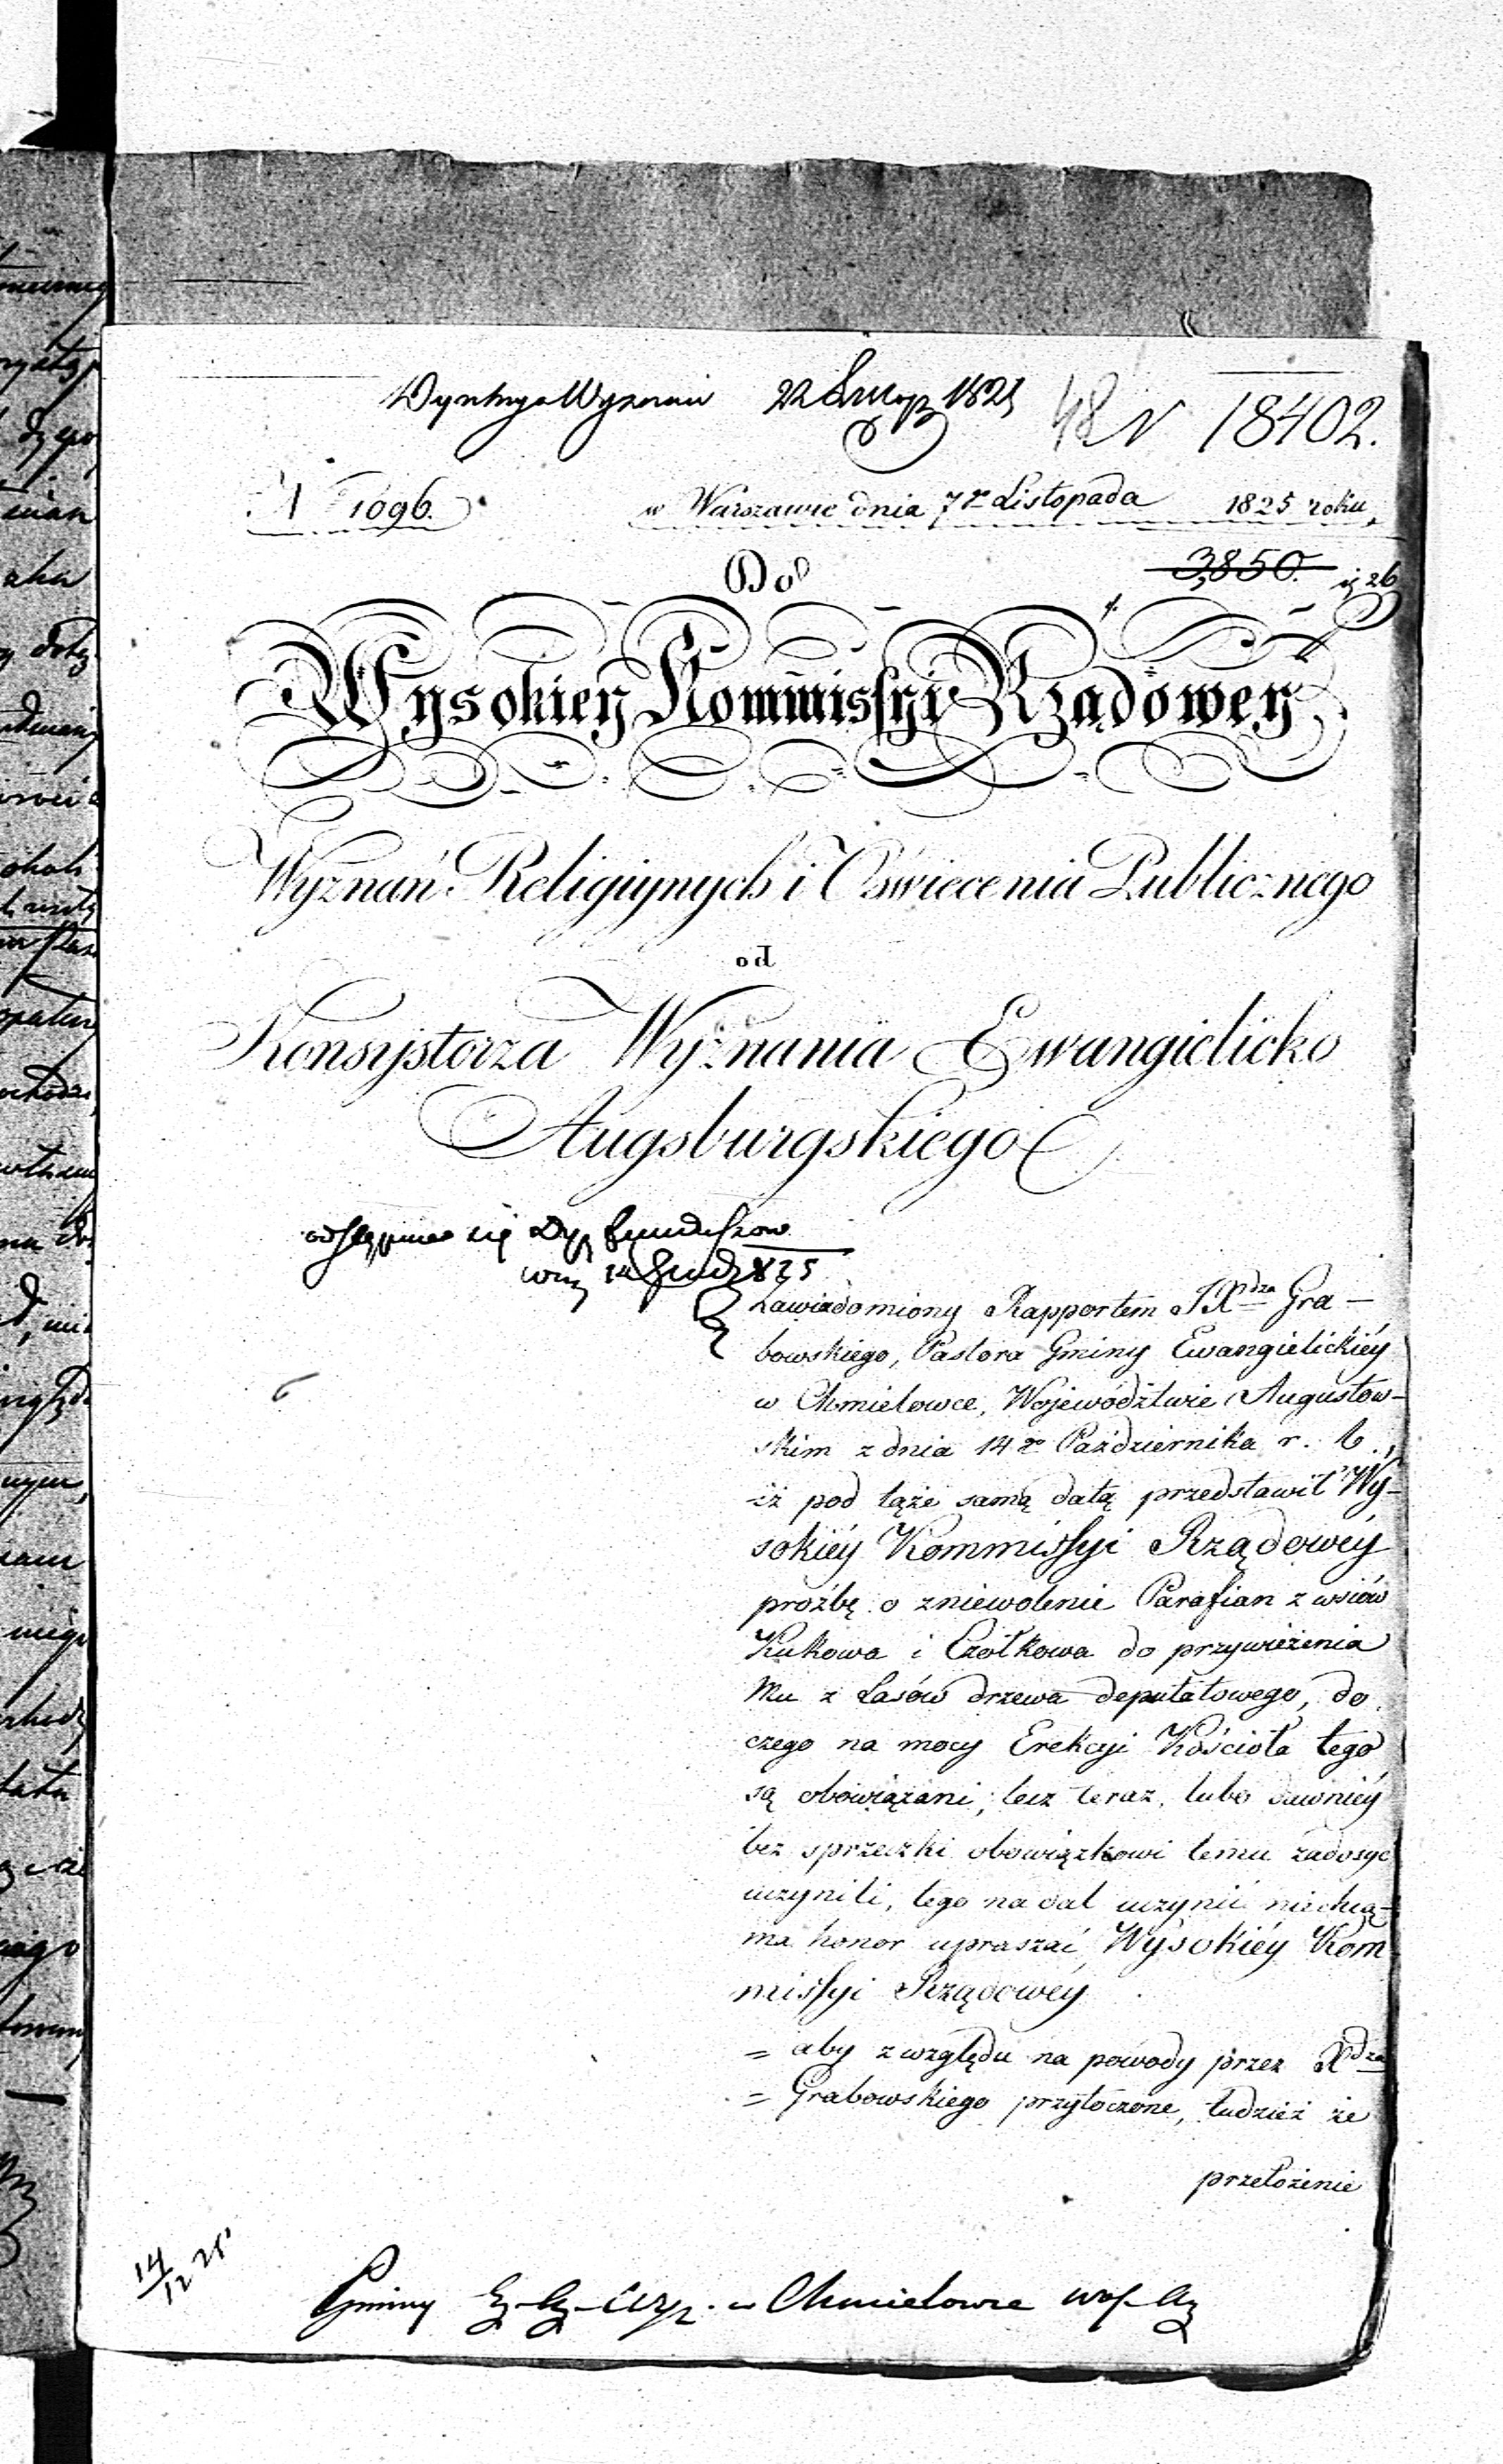 48 N 18402.
N 1096.
w Warszawie dnia 7go Listopada 1825 roku,
3,850. 26
Do
Wysokiey Kommissyi Rządowey
Wyznań Religiynych i Oświecenia Publicznego
od
Konsystorza Wyznania Ewangielicko
Augsburgskiego
odstępuie się Dyr. Funduszow
14 Grud 825
Zawiadomiony Rapportem JXdza Gra-
bowskiego, Pastora Gminy Ewangielickiéy
w Chmielowce, Województwie Augustow-
skim z dnia 14go Października r. b.,
iż pod tąże samą datą przedstawił Wy-
sokiéy Kommissyi Rządowéy
proźbę o zniewolenie Parafian z wsiów
Kukowa i Czółkowa do przywieżenia
Mu z Lasów drzewa deputatowego, do
czego na mocy Erekcyi Kościoła tego
są obowiązani, lecz teraz, lubo dawniéy
bez sprzeczki obowiązkowi temu zadosyć
uczynili, tego nadal uczynić niechcą-
ma honor upraszać Wysokiéy Kom
missyi Rządowéy
= aby z względu na powody przez Xdza
= Grabowskiego przytoczone, tudzież że
przełożenie
14/12 25
Gminy Ew. Aug. w Chmielowce Woj. Aug